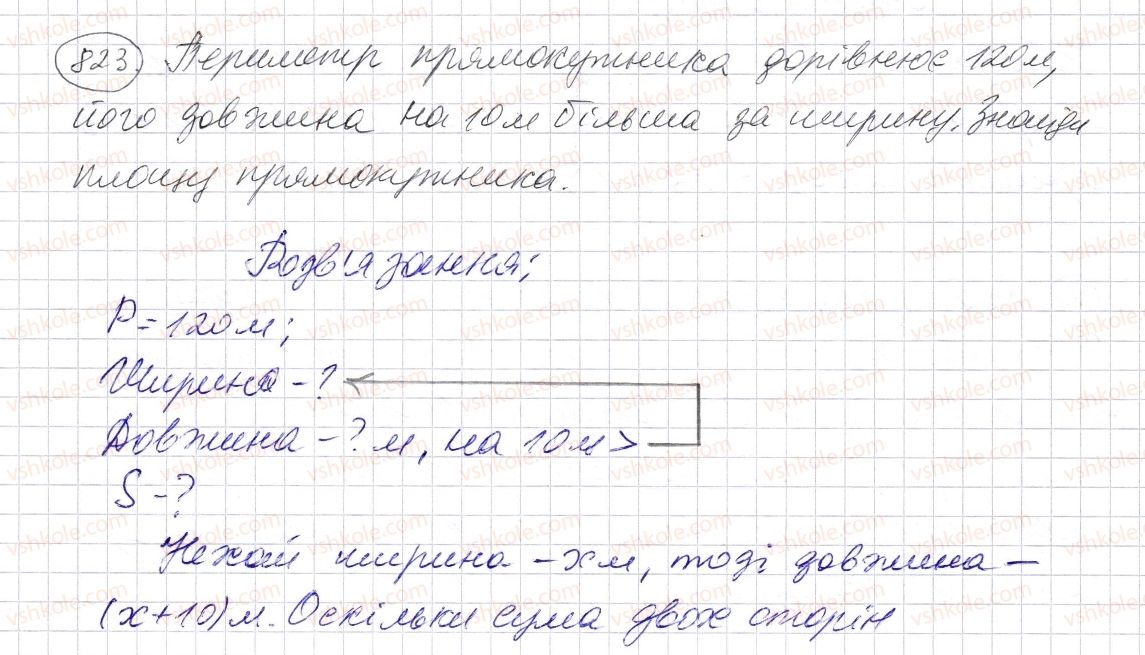 823. Периметр прямокутника дорівнює 120 м,
його довжина на 10 м більша за ширину. Знайди
площу прямокутника.
Розв'язання;
P = 120 м;
Ширина - ?
Довжина - ? м, на 10 м >
S - ?
Нехай ширина - x м, тоді довжина -
(x+10) м. Оскільки сума двох сторін
vshkole.com